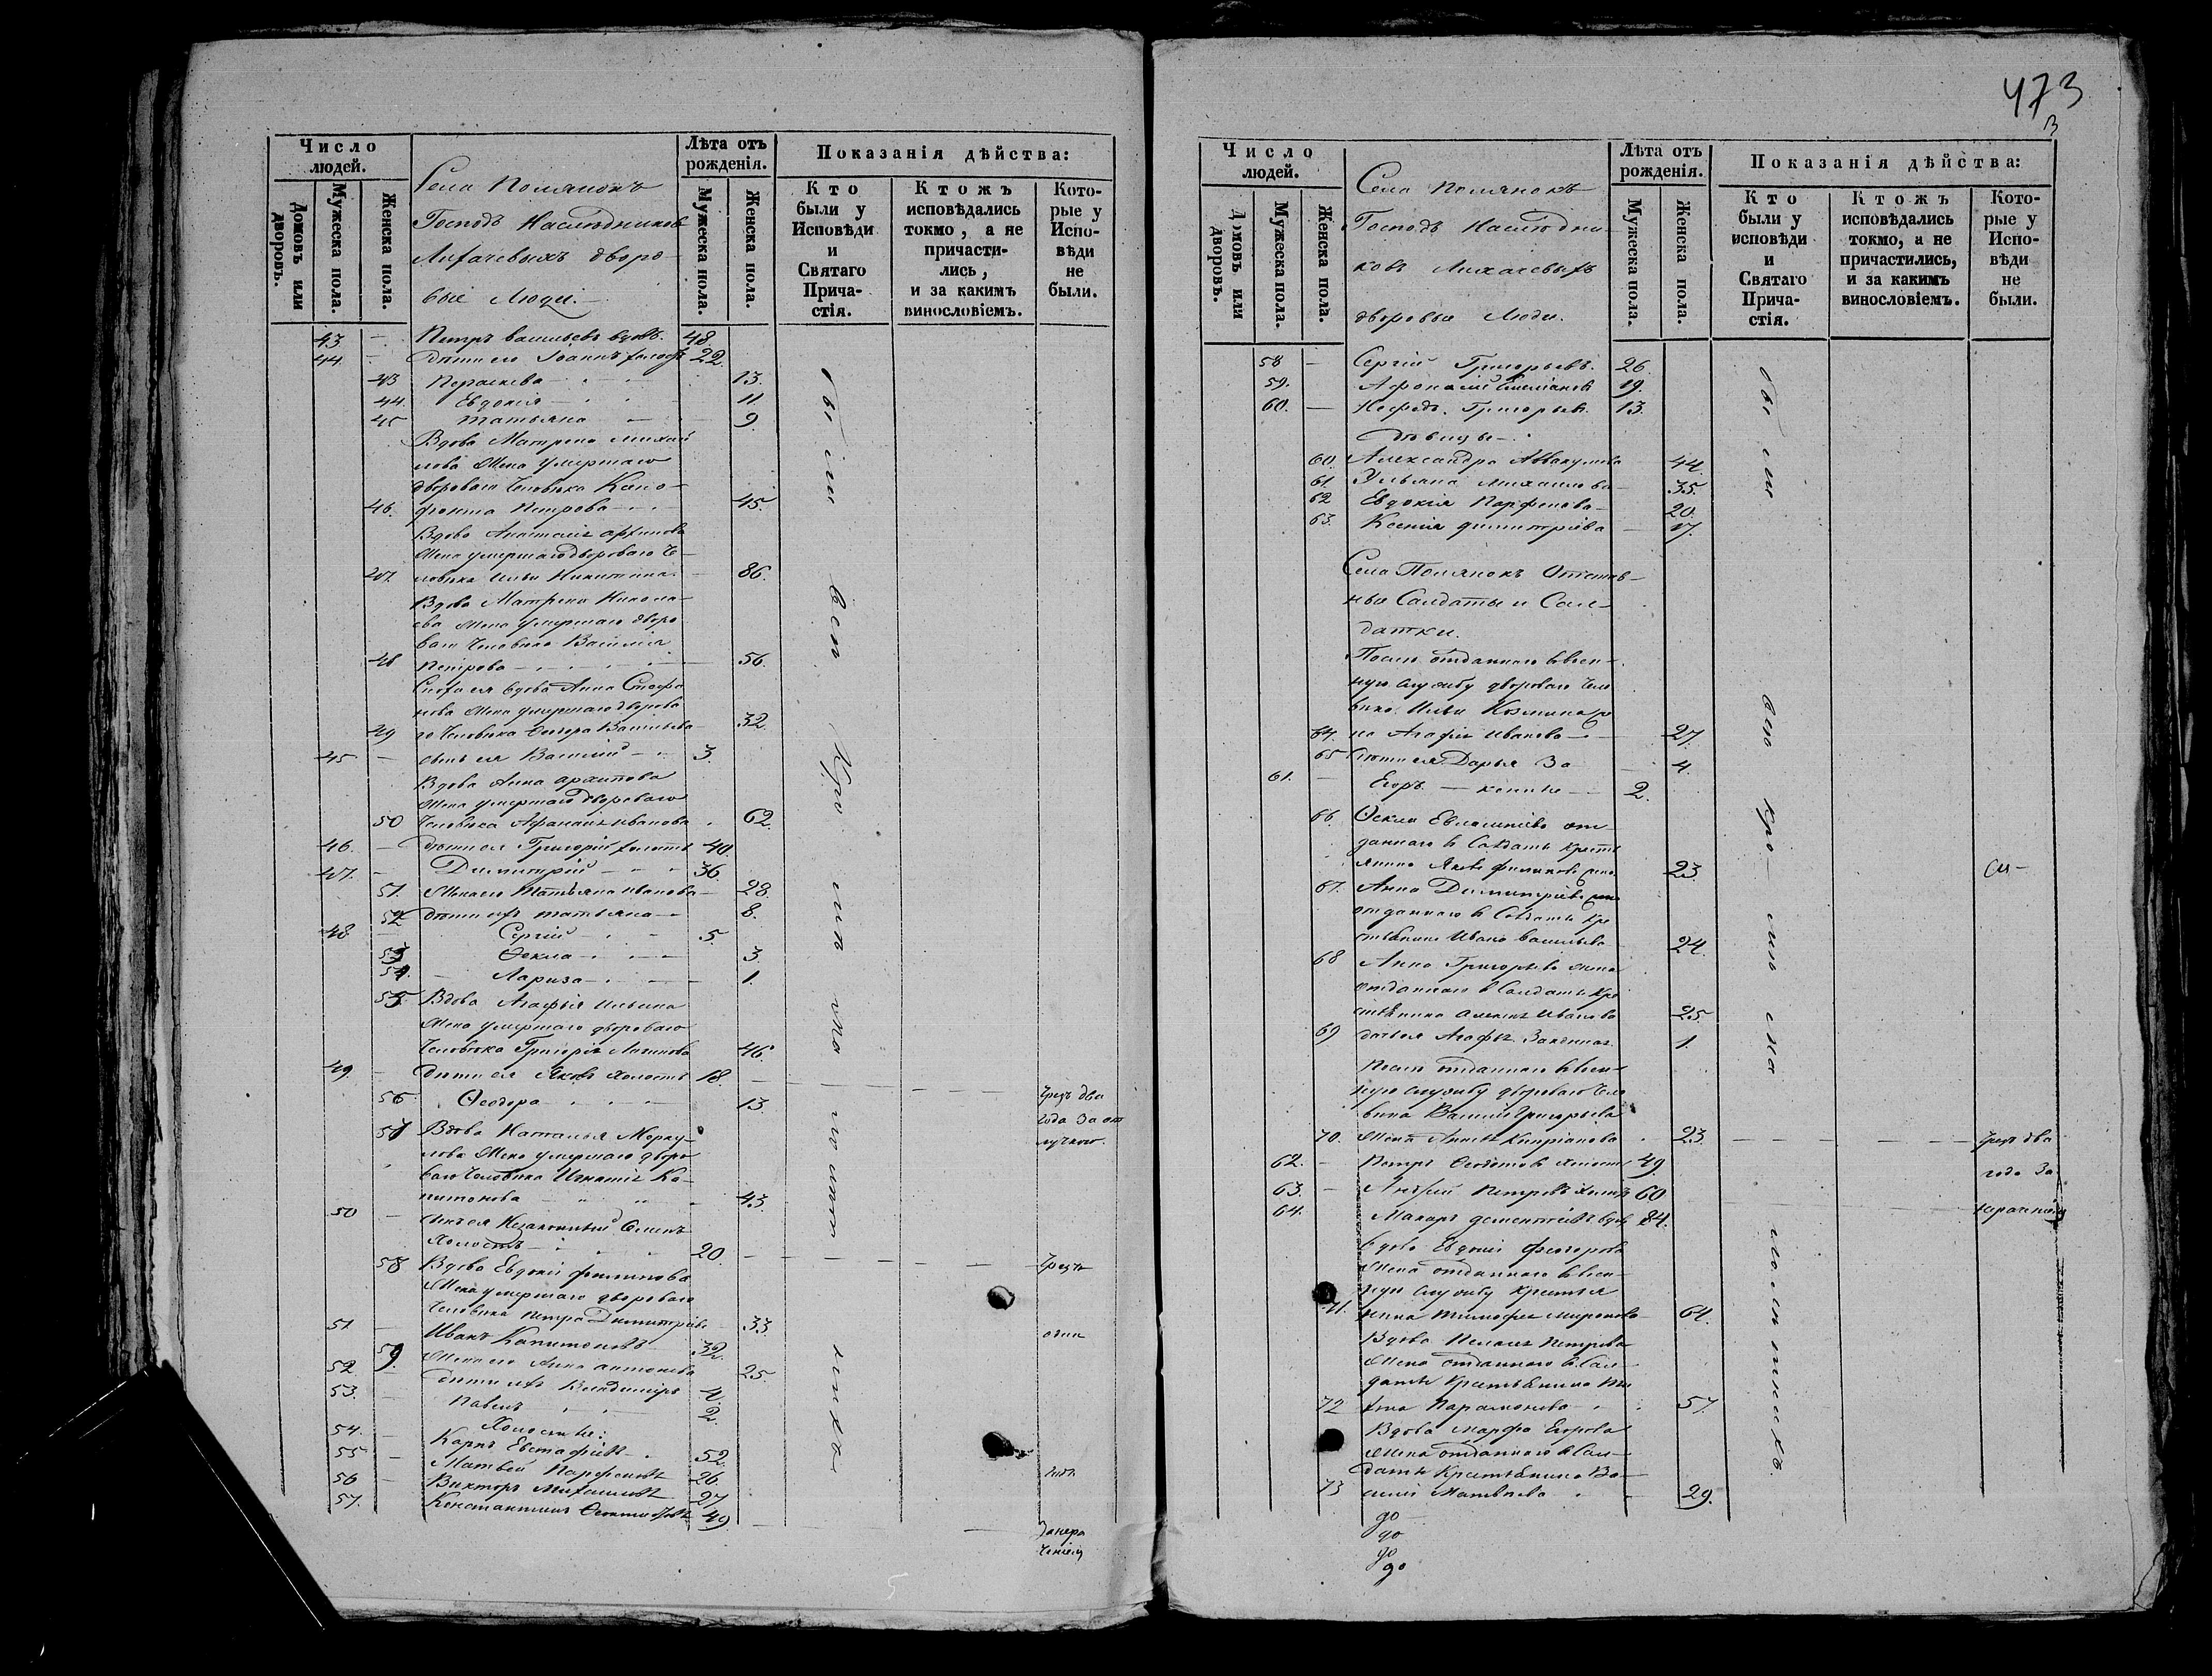 473
Число людей.
Домовъ или дворовъ.
Мужеска пола.
Женска пола.
Села Полянокъ
Господъ Наслѣдниковъ
Лихачевыхъ дворо-
вые Люди.
Лѣта отъ рожденія.
Мужеска пола.
Женска пола.
Показанія дѣйства:
Кто были у Исповѣди и Святаго Прича-стія.
Ктожъ исповѣдались токмо, а не причасти-лись, и за какимъ винословіемъ.
Кото-рые у Испо-вѣди не были.
43 — Петръ Васильевъ вдовъ. 48
44 — дѣти его Іоаннъ холостъ 22
43 Пораскева 13.
44. Евдокія 11
45 Татьяна 9.
Вдова Матрена Михай
лова Жена умершаго
двороваго Человѣка
46. Петрова 45.
Вдова Анастасія Архипова
Жена умершаго двороваго Че-
47 ловѣка Ильи Никитина 86.
Вдова Матрена Никола-
ева Жена умершаго дворо
ваго Человѣка Василія
48 Петрова 56.
вдова Анна Стефа
нова Жена умершаго дворова
49 го Человѣка Васильева 32
45 — сынъ ея Василий 3.
Вдова Анна Архипова
Жена умершаго двороваго
50 Человѣка Афанасія Иванова 62.
46. — дѣти ея Григорій холостъ 40.
47. — Димитрій 36.
51. Жена его Татьяна Иванова 28.
52 дѣти ихъ Татьяна 8.
48 — Сергій 5.
53 Ѳекла 3.
54. Лариза 1.
55 Вдова Агафія Ильина
Жена умершаго двороваго
Человѣка Григорія Логинова 46.
49. — дѣти ея Яковъ Холостъ 18.
56 Ѳеодора 13
чрезъ два
года За от
лучкою.
57 Вдова Наталья Мерку-
лова Жена умершаго дворо
ваго Человѣка Игнатія Ка-
питонова 43.
50 — сынъ ея Незаконный Семенъ
Холостъ 20.
58 Вдова Евдокія Филипова
Жена умершаго двороваго
Человѣка Петра Димитріева 33.
чрезъ
одинъ
годъ
51 — Иванъ Капитоновъ 32.
59. Жена его Анна Антонова 25.
52 — дѣти ихъ Владимиръ 4.
53. — Павелъ 2.
Холостые:
54. — Карпъ Евстафіевъ 52.
55 — Матвей Парфеновъ 26.
56 — Викторъ Михайловъ 27
57. Константинъ 49
Занера
ченіемъ
Были вси Кромѣ показанныхъ
Число людей.
Домовъ или дворовъ.
Мужеска пола.
Женска пола.
Села Полянокъ
Господъ Наслѣдни-
ковъ Лихачевыхъ
дворовые Люди.
Лѣта отъ рожденія.
Мужеска пола.
Женска пола.
Показанія дѣйства:
Кто были у исповѣди и Святаго Прича-стія.
Ктожъ исповѣдались токмо, а не причастились, и за какимъ винословіемъ.
Кото-рые у Испо-вѣди не были.
58 — Сергій Григорьевъ. 26.
59. Афонасій 19.
60. — Григорьевъ. 13.
Дѣвицы
60. Александра Аввакумова 44.
61. Ульяна Михаилова 35.
62 Евдокія Парфенова 20.
63. Ксенія Димитріева 17.
Села Полянокъ Отстав-
ные Салдаты и Сал-
датки.
Послѣ отданнаго въ воен-
ную службу двороваго Чело
вѣка Ильи Козмина же
64. на Агафія Иванова 27.
65 Дѣти ея Дарья За 4.
61. — Егоръ — конные 2.
66. Ѳекла от-
даннаго в Салдаты крестья
янина Якова Филипова жена 23.
67. Анна Димитріева жена
отданнаго в Солдаты Кре
стьянина Ивана Васильева 24.
68 Анна Григорьева жена
отданнаго в Салдаты Кре
стьянина Алексѣя Иванова 25.
69 дочь ея Агафья Законная 1.
Послѣ отданнаго въ воен-
ную службу двороваго Чело
вѣка Василія Григорьева
70. Жена Кипріанова 23.
чрезъ два
года За
нераченіемъ
62. — Петръ Ѳедотовъ Холостъ 49.
63. — Андрей Петровъ Холостъ 60
64. Макаръ Дементіевъ вдовъ 84.
Вдова Евдокія
Жена отданнаго въ воен-
ную службу Крестья
71. нина Тимофея Миронова 64.
Вдова Пелагея Петрова
Жена отданнаго в Сал-
даты Крестьянина
72 Парамонова 57.
Вдова Марфа Егорова
Жена отданнаго в Сал-
даты Крестьянина Ва-
73 силія Матвѣева 29.
до
до
до
до